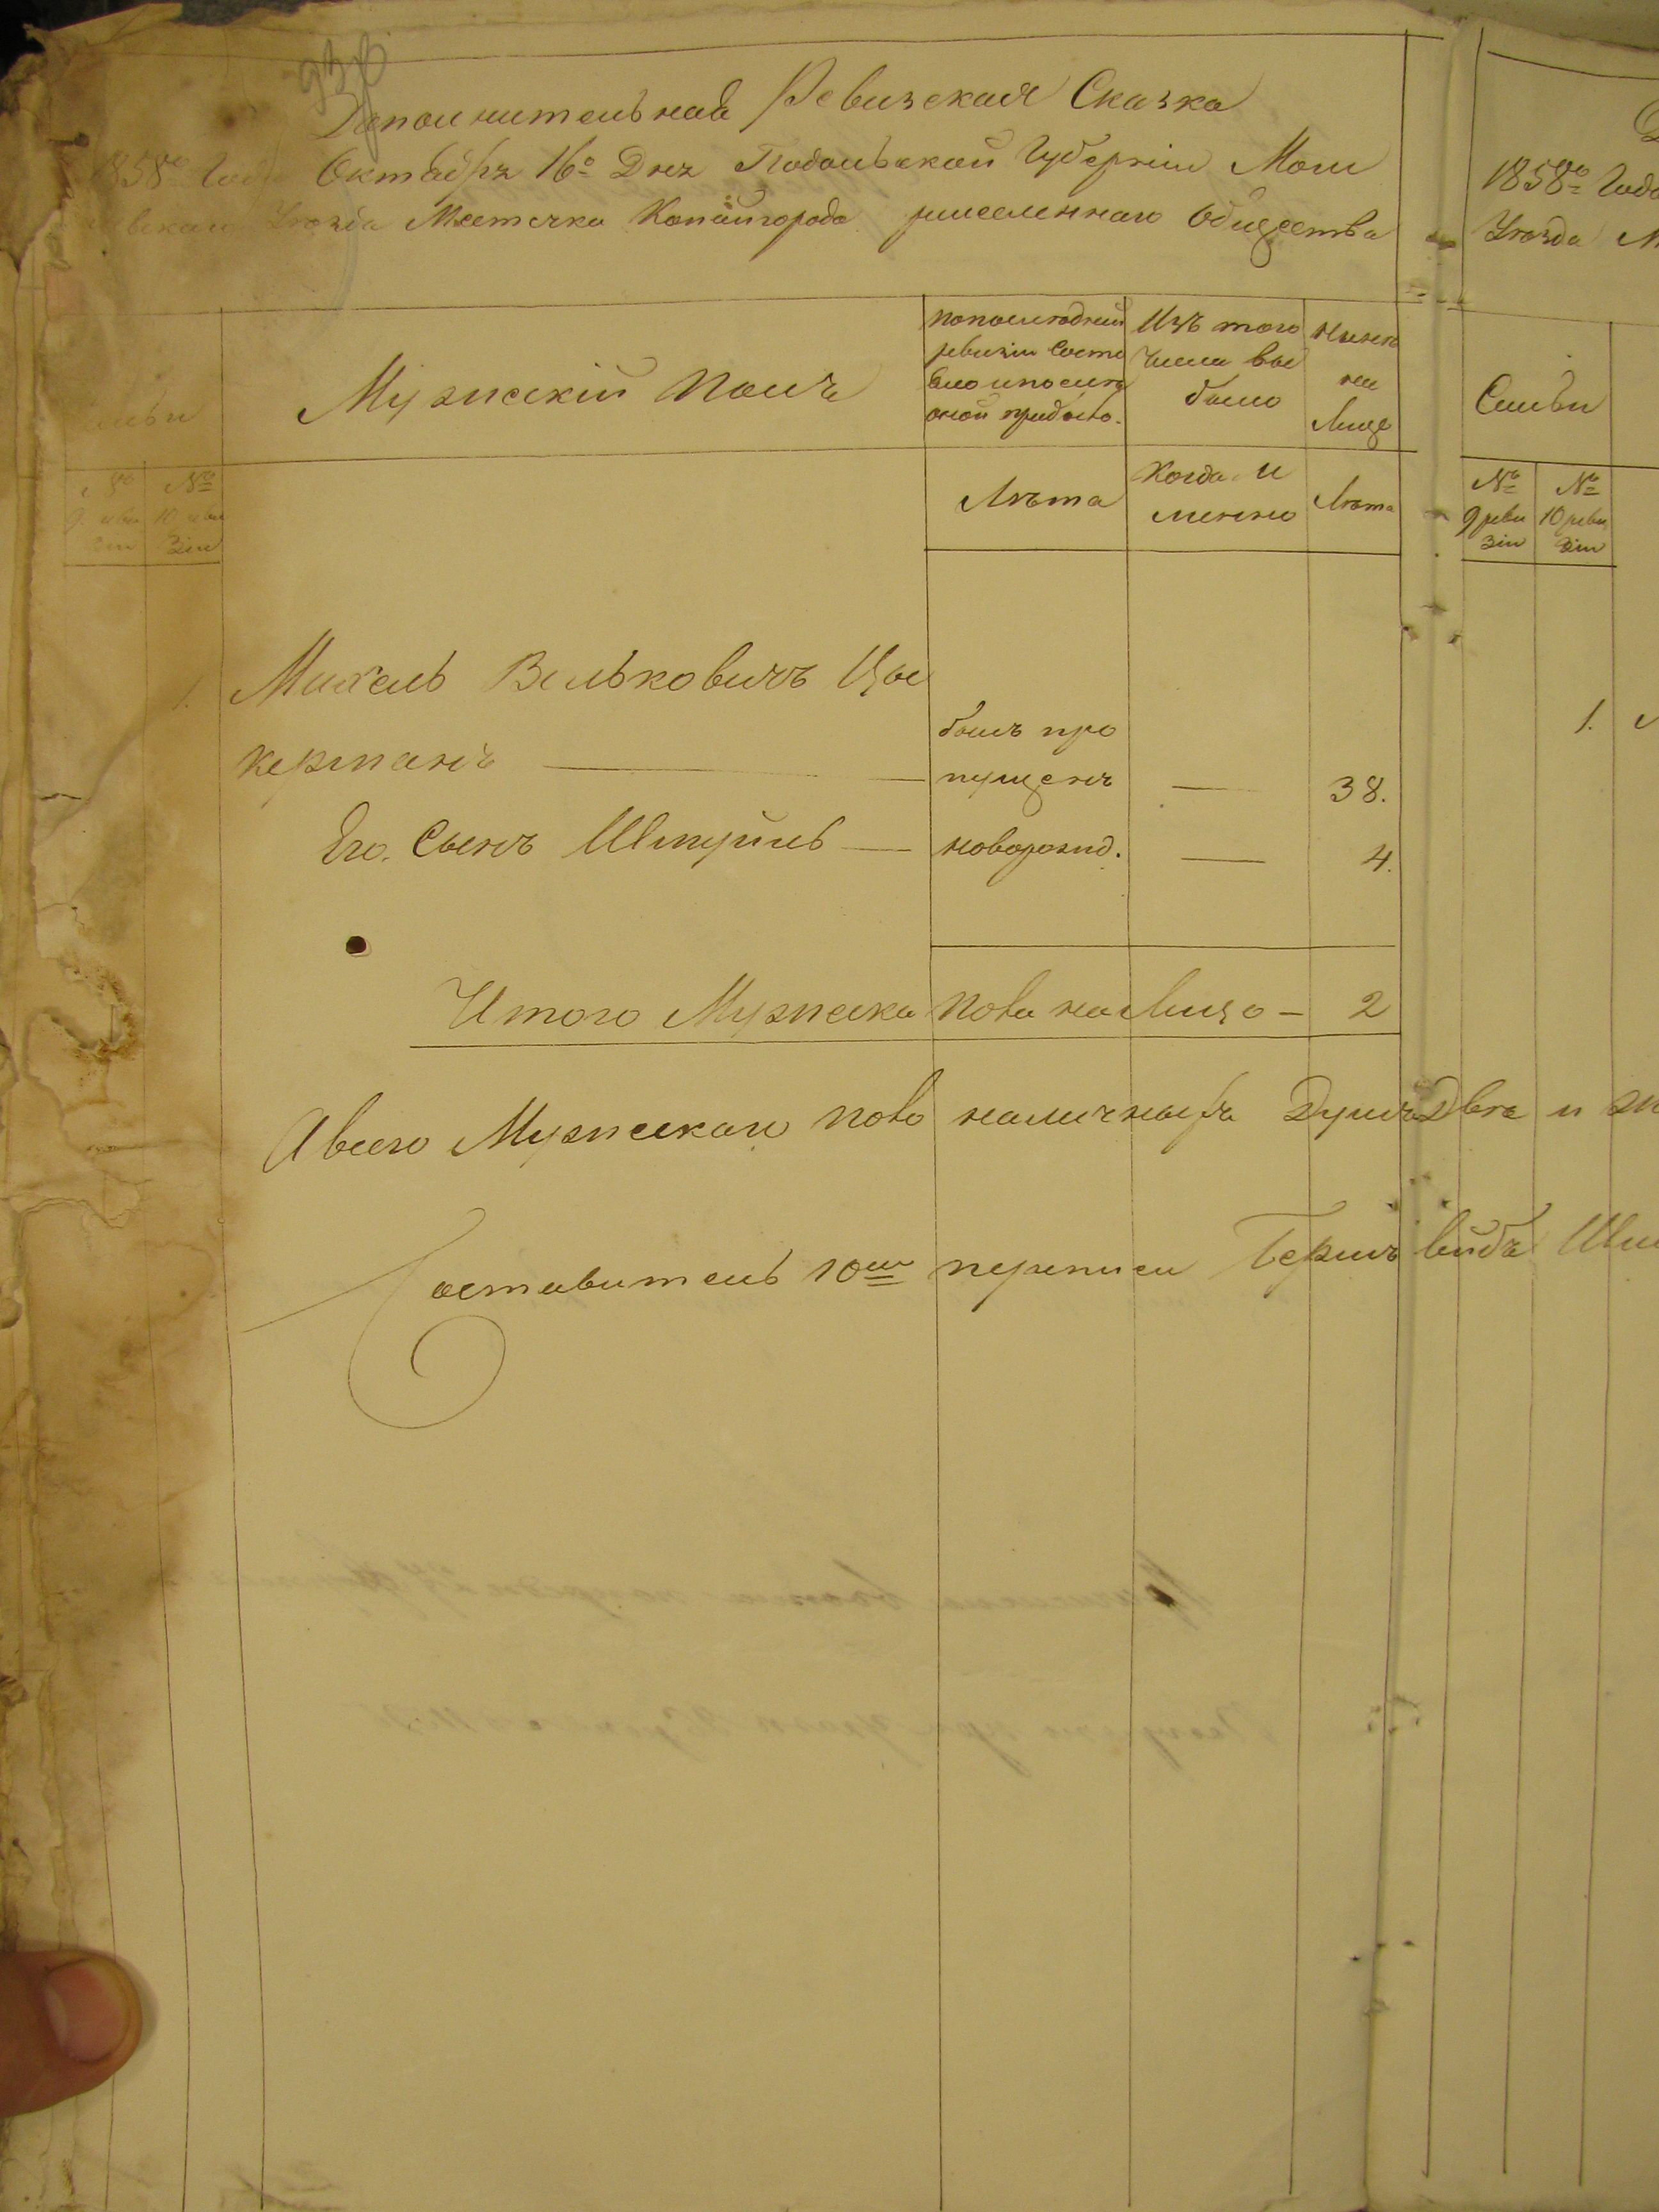 Дополнительная Ревизская Сказка
1858го Года Октября 16го Дня Подольской Губерніи Моги
левскаго Уѣзда Местечка Копайгорода общества
Мужескій Полъ
по последней
ревизіи состо
яло и после
оной прибыло.
Изъ того
числа вы
было
Ныне
на
Лицо
Семьи
№
9 реви
зіи
№
10 реви
зіи
Лѣта
Когда И
менно
Лѣта
1.
Михель Вельковичъ Цу
керманъ
былъ про
пущенъ
—
38.
Его Сынъ Шмуйль
новорожд.
—
4.
Итого Мужеска пола на Лицо — 2
А всего Мужескаго пола наличныхъ Душъ Две и
Составитель 10ой переписи Бершъ
1858го Года
Уѣзда М
Семьи
№
9 реви
зіи
№
10 реви
зіи
1.